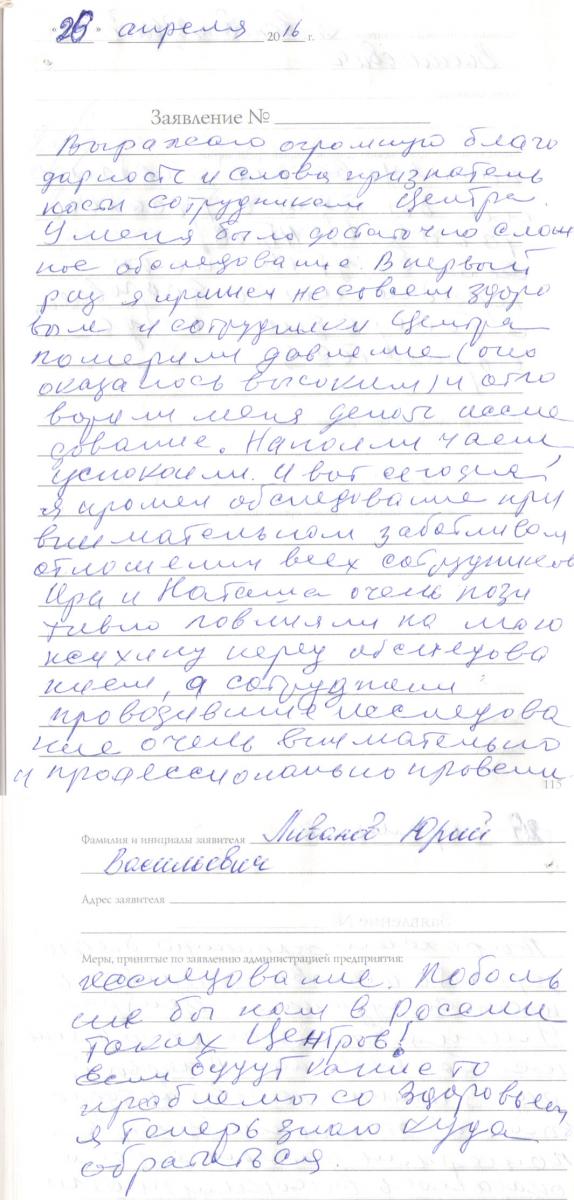 "26" апреля 2016 г.
Заявление №
Выражаю огромную благо
дарность и слова признатель
ности сотрудникам Центра.
У меня было достаточно слож
ное обследование. В первый
раз я пришел не совсем здоро
вым и сотрудники Центра
померили давление (оно
оказалось высоким) и отго
ворили меня делать иссле
дование. Напоили чаем,
успокоили. И вот сегодня
я прошел обследование при
внимательном заботливом
отношении всех сотрудников
Ира и Наташа очень пози
тивно повлияли на мою
психику перед обследова
нием, а сотрудники
проводившие исследова
ние очень внимательно
и профессионально провели
115
Фамилия и инициалы заявителя Ливанов Юрий
Васильевич
Адрес заявителя
Меры, принятые по заявлению администрацией предприятия:
исследование. Поболь
ше бы нам в России
таких Центров!
если будут какие то
проблемы со здоровьем
я теперь знаю куда
обратиться.